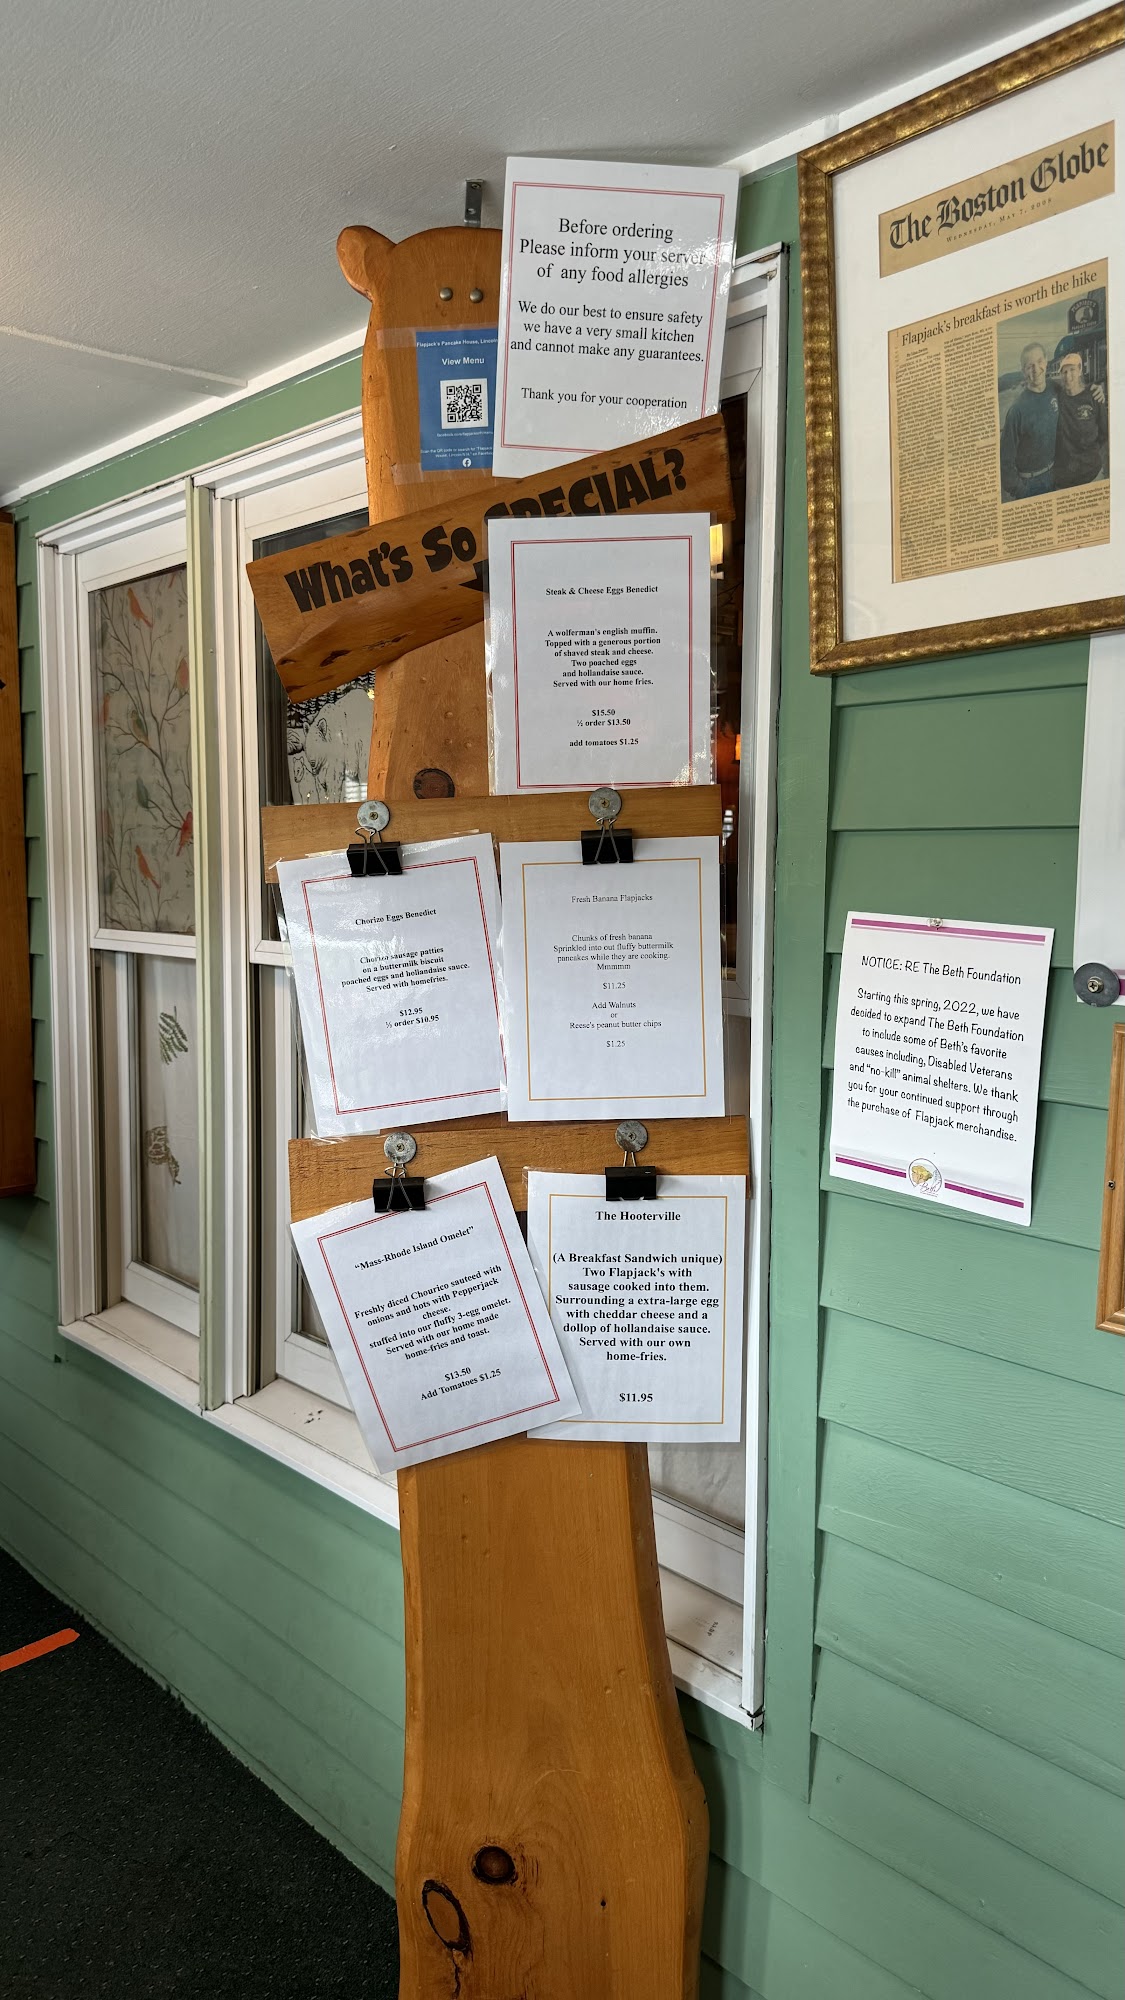 Before ordering
Please inform your server
of any food allergies
We do our best to ensure safety
we have a very small kitchen
and cannot make any guarantees.
Thank you for your cooperation
Flapjack's Pancake House, Lincoln
View Menu
What's So SPECIAL?
Steak & Cheese Eggs Benedict
A wolferman's english muffin.
Topped with a generous portion
of shaved steak and cheese.
Two poached eggs
and hollandaise sauce.
Served with our home fries.
$15.50
½ order $13.50
add tomatoes $1.25
Chorizo Eggs Benedict
Chorizo sausage patties
on a buttermilk biscuit
poached eggs and hollandaise sauce.
Served with homefries.
$12.95
½ order $10.95
Fresh Banana Flapjacks
Chunks of fresh banana
Sprinkled into out fluffy buttermilk
pancakes while they are cooking.
Mmmmm
$11.25
Add Walnuts
or
Reese's peanut butter chips
$1.25
"Mass-Rhode Island Omelet"
Freshly diced Chourico sauteed with
onions and hots with Pepperjack
cheese.
stuffed into our fluffy 3-egg omelet.
Served with our home made
home-fries and toast.
$13.50
Add Tomatoes $1.25
The Hooterville
(A Breakfast Sandwich unique)
Two Flapjack's with
sausage cooked into them.
Surrounding a extra-large egg
with cheddar cheese and a
dollop of hollandaise sauce.
Served with our own
home-fries.
$11.95
The Boston Globe
Wednesday, May 7, 2008
Flapjack's breakfast is worth the hike
NOTICE: RE The Beth Foundation
Starting this spring, 2022, we have
decided to expand The Beth Foundation
to include some of Beth's favorite
causes including, Disabled Veterans
and "no-kill" animal shelters. We thank
you for your continued support through
the purchase of Flapjack merchandise.
Beth